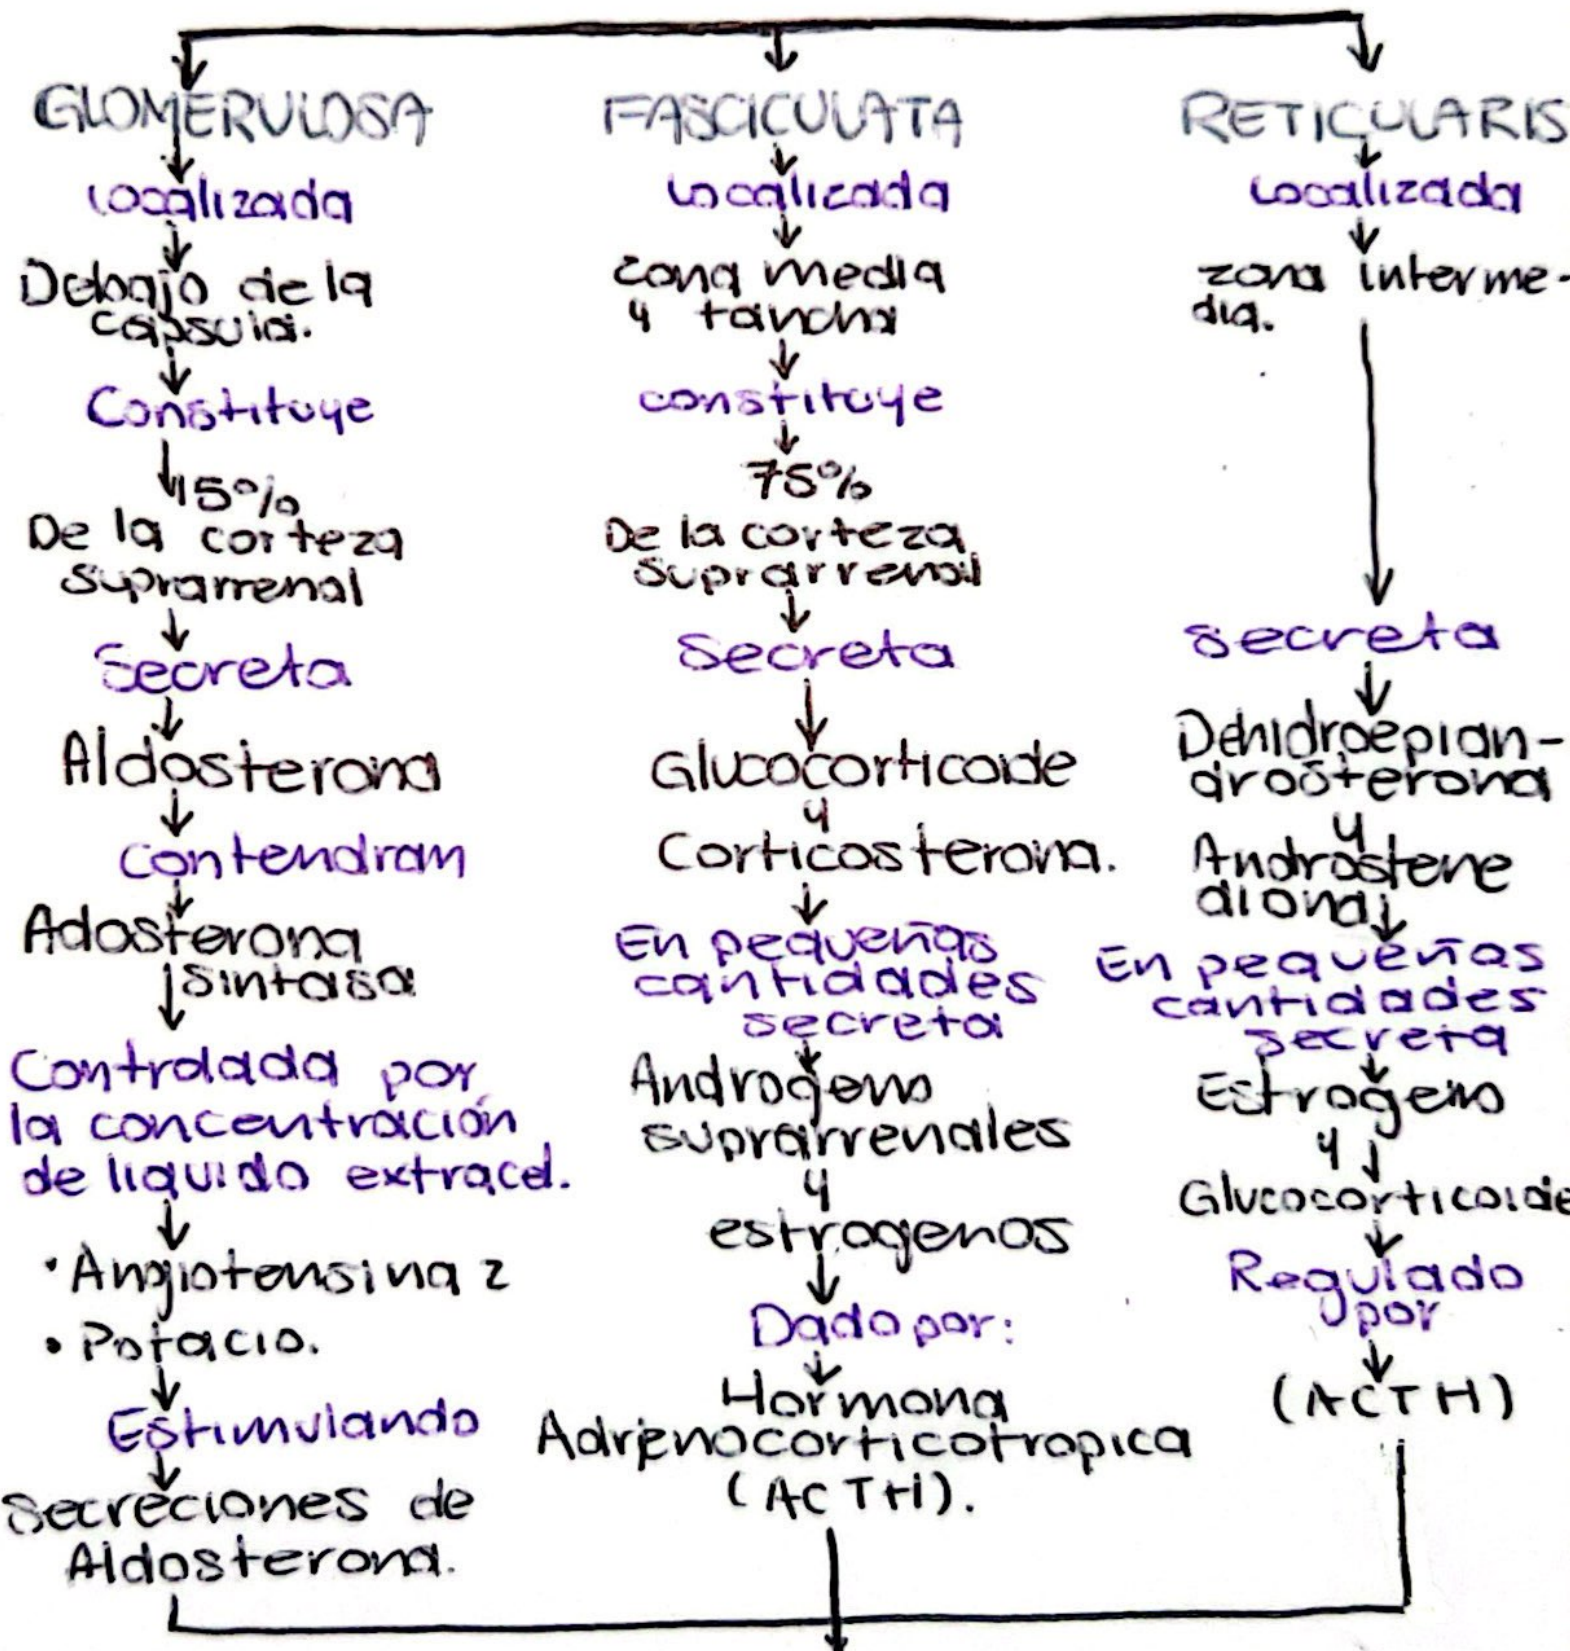 GLOMERULOSA
localizada
Debajo de la
capsula.
Constituye
15%
De la corteza
suprarrenal
Secreta
Aldosterona
contendram
Adosterona
sintasa
Controlada por
la concentración
de liquido extracel.
• Angiotensina 2
• Potacio.
Estimulando
Secreciones de
Aldosterona.
FASCICULATA
Localizada
zona media
y
constituye
75%
De la corteza
suprarrenal
Secreta
Glucocorticoide
y
Corticosterona.
En pequeñas
cantidades
secreta
Androgeno
suprarrenales
y
estrogenos
Dado por:
Hormona
Adrenocorticotropica
(ACTH).
RETICULARIS
Localizada
zona interme-
dia.
secreta
Dehidroepian-
drosterona
y
Androstene
diona
En pequeñas
cantidades
secreta
Estrogeno
y
Glucocorticoide
Regulado
por
(ACTH)